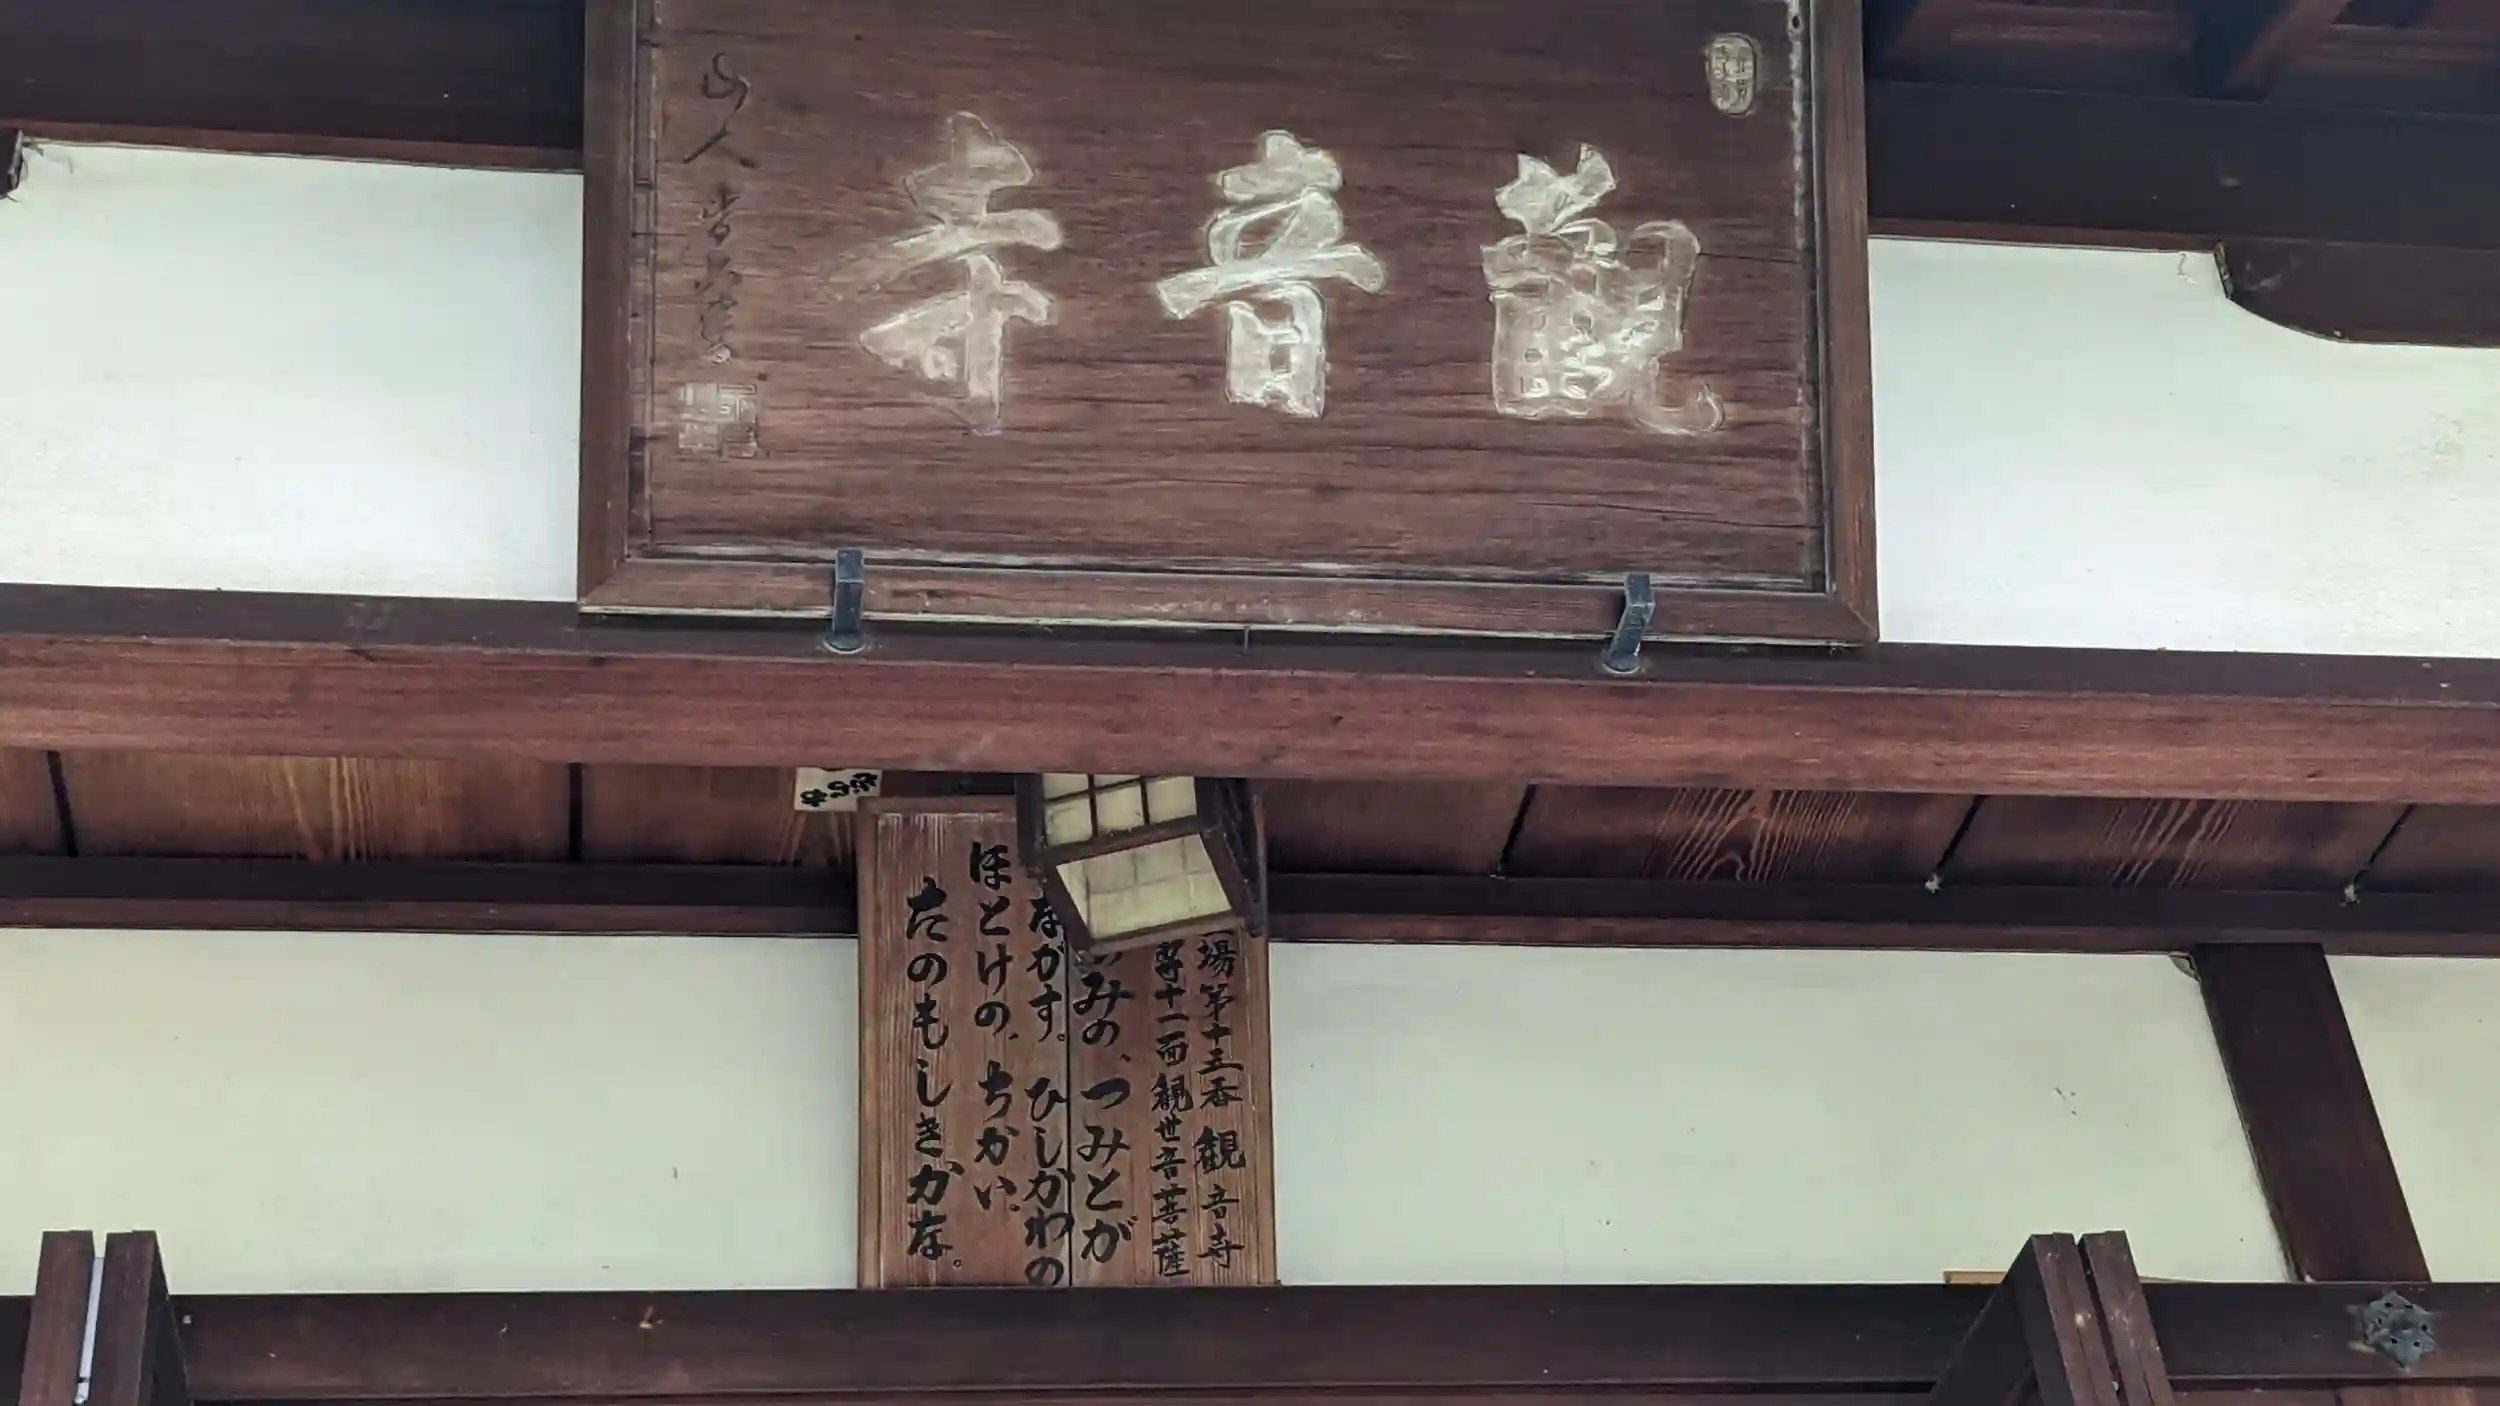 観音寺
山人
場第十五番 観音寺
尊十一面観世音菩薩
みの、つみとが
ながす。ひしがわの
ほとけの、ちかい、
たのもしきかな。